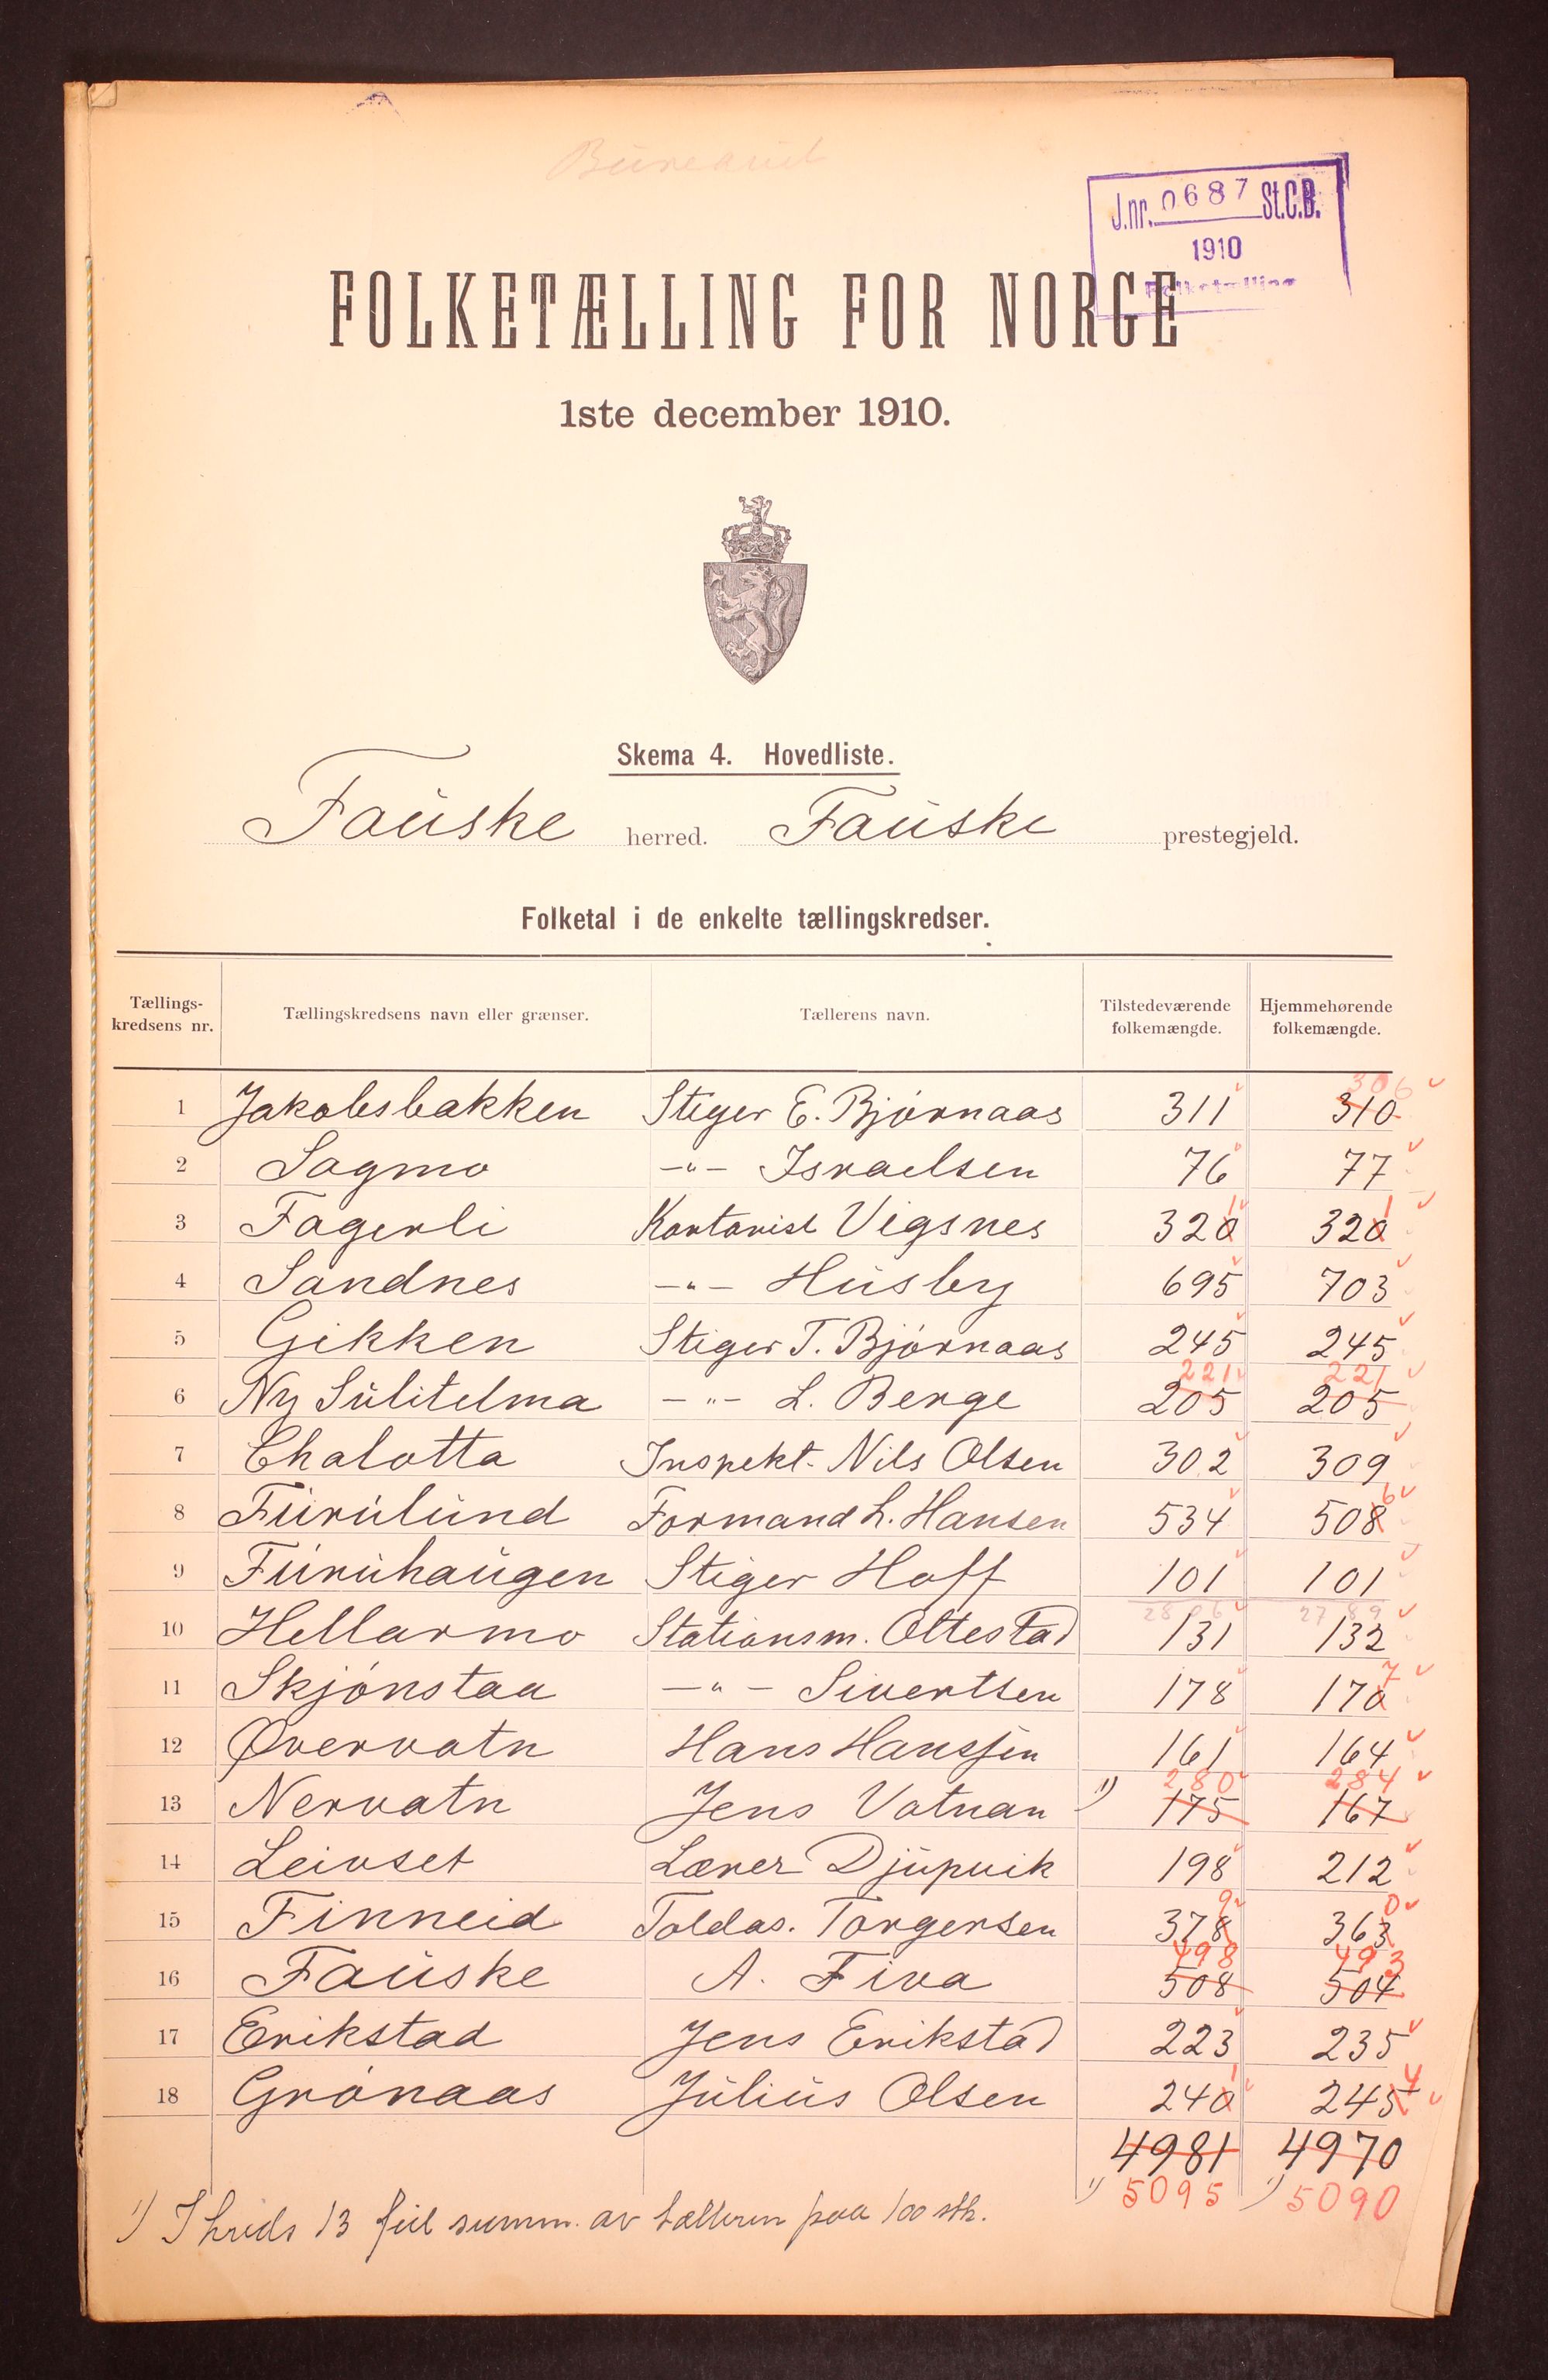 Büreauet
J.nr. 0687 St.C.B.
1910
Folketælling
FOLKETÆLLING FOR NORGE
1ste december 1910.
Skema 4. Hovedliste.
Fauske herred. Fauske prestegjeld.
Folketal i de enkelte tællingskredser.
Tællings-kredsens nr. Tællingskredsens navn eller grænser. Tællerens navn. Tilstedeværende folkemængde. Hjemmehørende folkemængde.
306
1 Jakobsbakken Stiger E. Bjørnaas 311 310
2 Sagmo -"- Israelsen 76 77
1 1
3 Fagerli Kontorist Vigsnes 320 320
4 Sandnes -"- Husby 695 703
5 Gikken Stiger T. Bjørnaas 245 245
221 221
6 Ny Sulitelma -"- L. Berge 205 205
7 Chalotta Inspekt. Nils Olsen 302 309
6
8 Furulund Formand L. Hansen 534 508
9 Furuhaugen Stiger Hoff 101 101
2806 2789
10 Hellarmo Stationsm. Oltestad 131 132
7
11 Skjønstaa -"- Sivertsen 178 170
12 Øvervatn Hans Hanssen 161 164
280 284
13 Nervatn Jens Vatnan 1) 175 167
14 Leivset Lærer Djupvik 198 212
9 0
15 Finneid Toldas. Torgersen 378 363
498 493
16 Fauske A. Fiva 508 504
17 Erikstad Jens Erikstad 223 235
1 4
18 Grønaas Julius Olsen 240 245
4981 4970
1) 5095 1) 5090
1) I kreds 13 feil summ. av tælleren paa 100 stk.